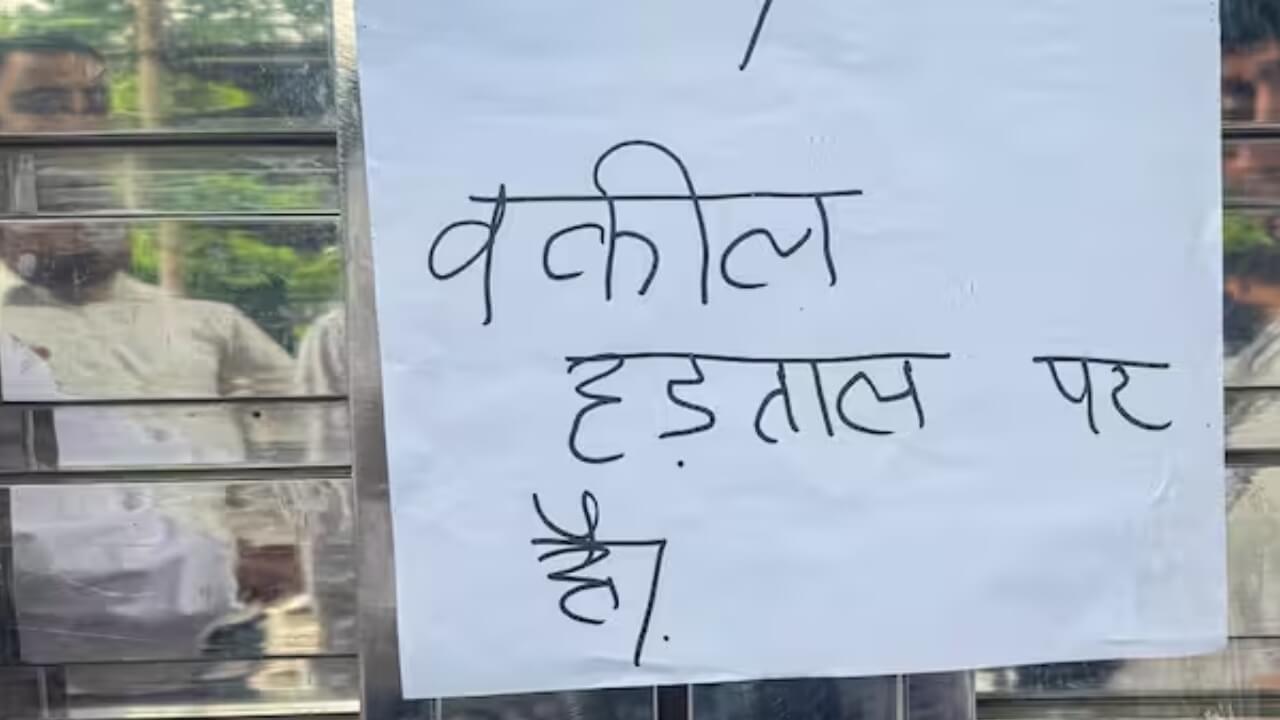 वकील
हड़ताल पर
है।